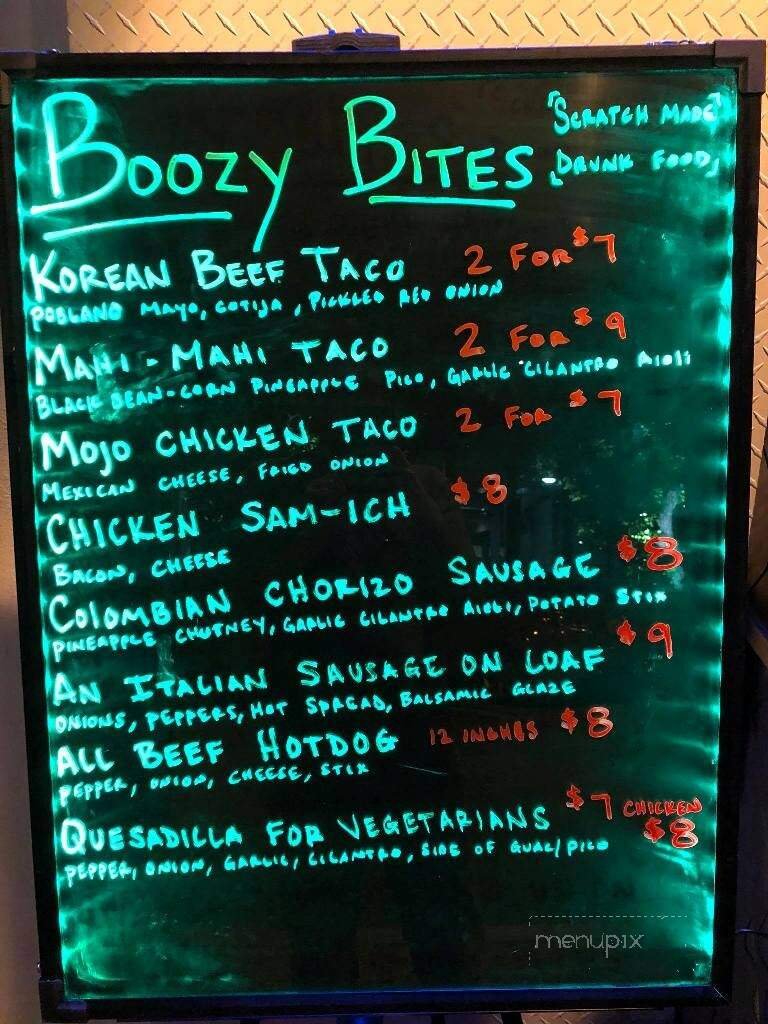 BOOZY BITES
"SCRATCH MADE
DRUNK FOOD"
KOREAN BEEF TACO 2 FOR $7
POBLANO MAYO, COTIJA, PICKLED RED ONION
MAHI-MAHI TACO 2 FOR $9
BLACK BEAN-CORN PINEAPPLE PICO, GARLIC CILANTRO AIOLI
MOJO CHICKEN TACO 2 FOR $7
MEXICAN CHEESE, FRIED ONION
CHICKEN SAM-ICH $8
BACON, CHEESE
COLOMBIAN CHORIZO SAUSAGE $8
PINEAPPLE CHUTNEY, GARLIC CILANTRO AIOLI, POTATO STIX
AN ITALIAN SAUSAGE ON LOAF $9
ONIONS, PEPPERS, HOT SPREAD, BALSAMIC GLAZE
ALL BEEF HOTDOG 12 INCHES $8
PEPPER, ONION, CHEESE, STIX
QUESADILLA FOR VEGETARIANS $7 CHICKEN $8
PEPPER, ONION, GARLIC, CILANTRO, SIDE OF GUAC/PICO
menupix